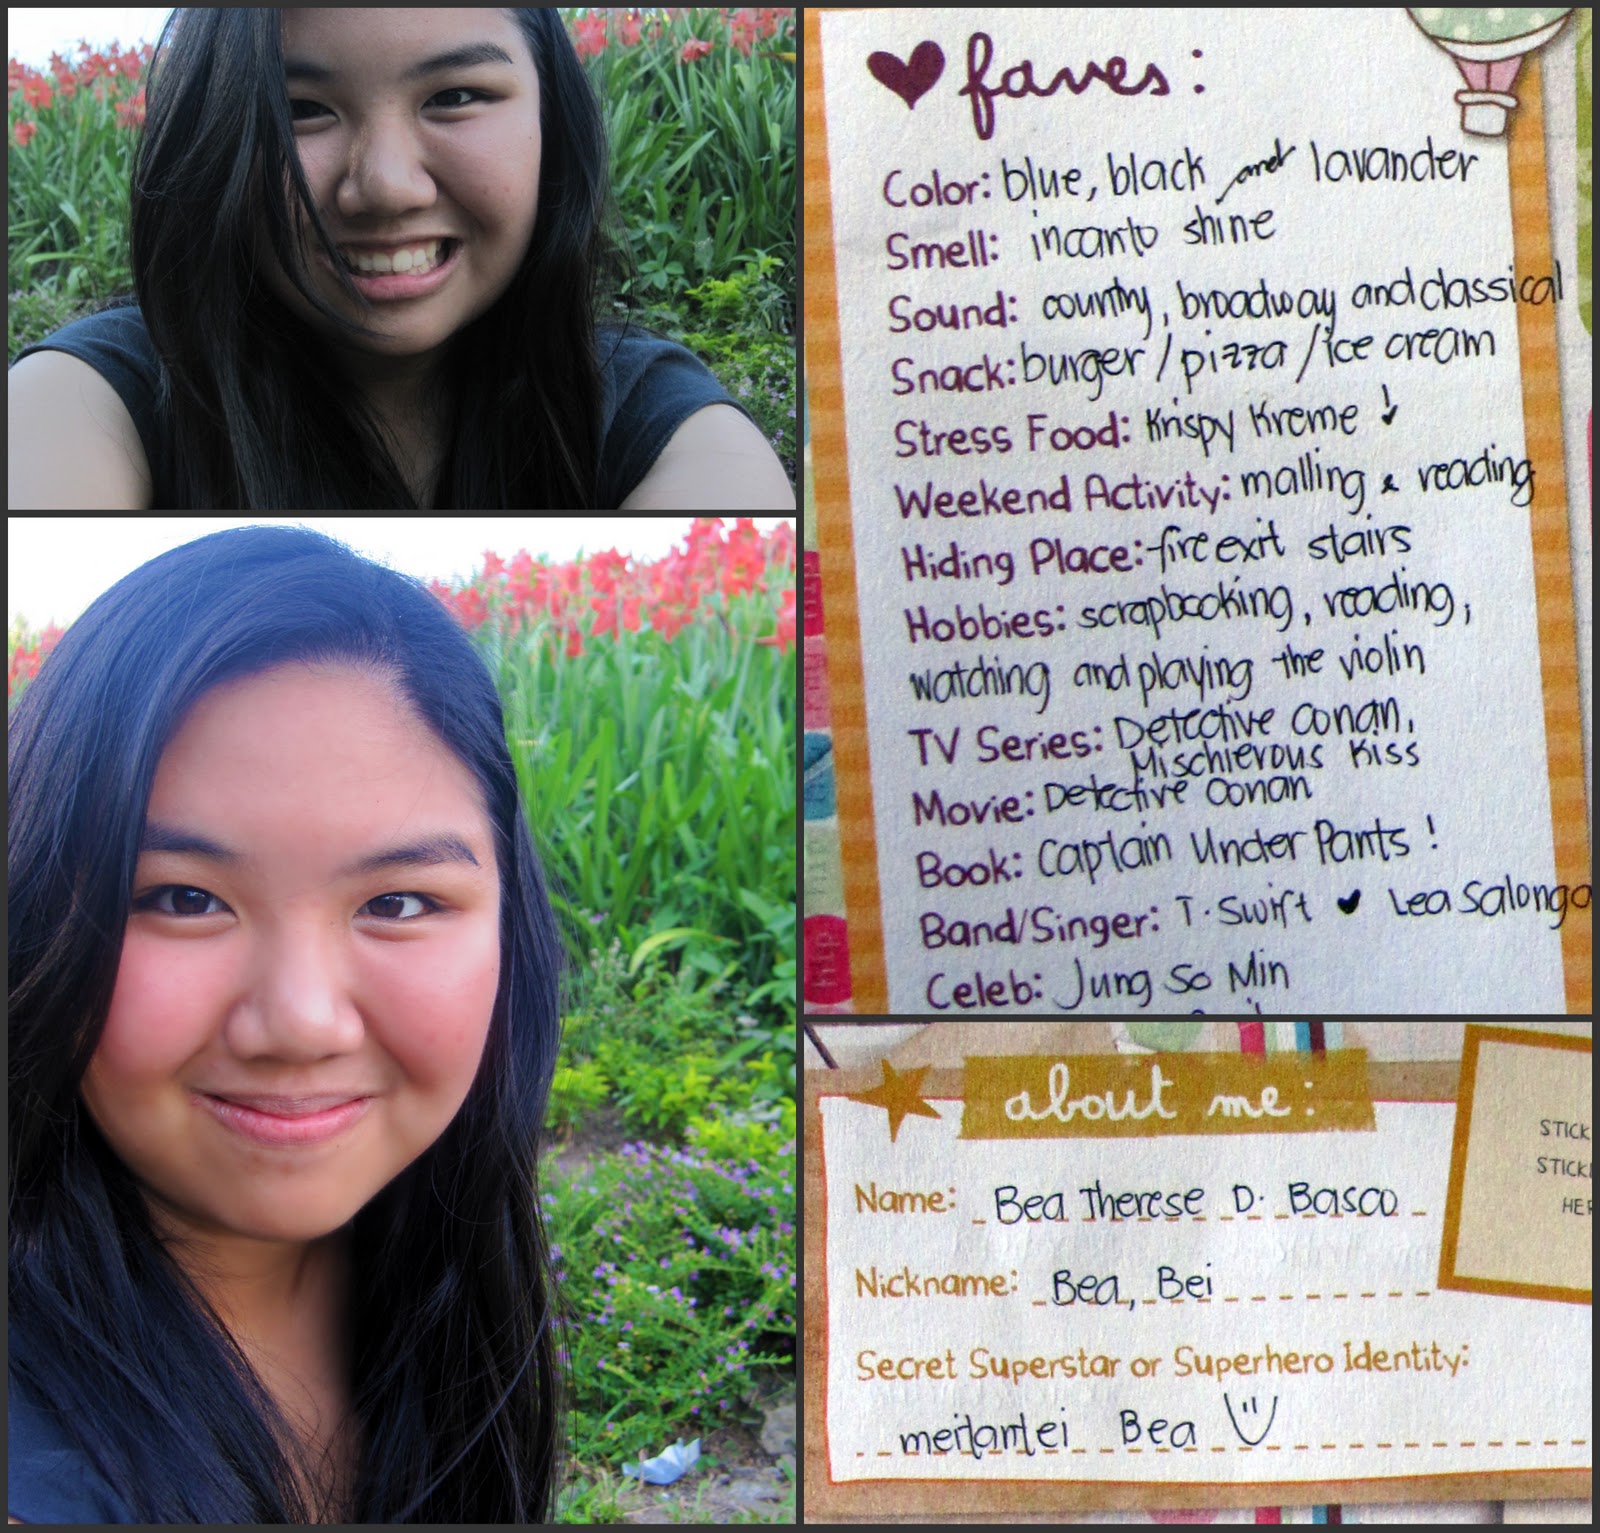 faves:
Color: blue, black and lavander
Smell: incanto shine
Sound: country, broadway and classical
Snack: burger / pizza / ice cream
Stress Food: Krispy Kreme
Weekend Activity: malling & reading
Hiding Place: fire exit stairs
Hobbies: scrapbooking, reading,
watching and playing the violin
TV Series: Detective Conan,
Mischievous Kiss
Movie: Detective Conan
Book: Captain Under Pants !
Band/Singer: T. Swift ♥ Lea Salonga
Celeb: Jung So Min
about me:
Name: Bea Therese D. Basco
Nickname: Bea, Bei
Secret Superstar or Superhero Identity:
Bea
STICK
STICK
HER